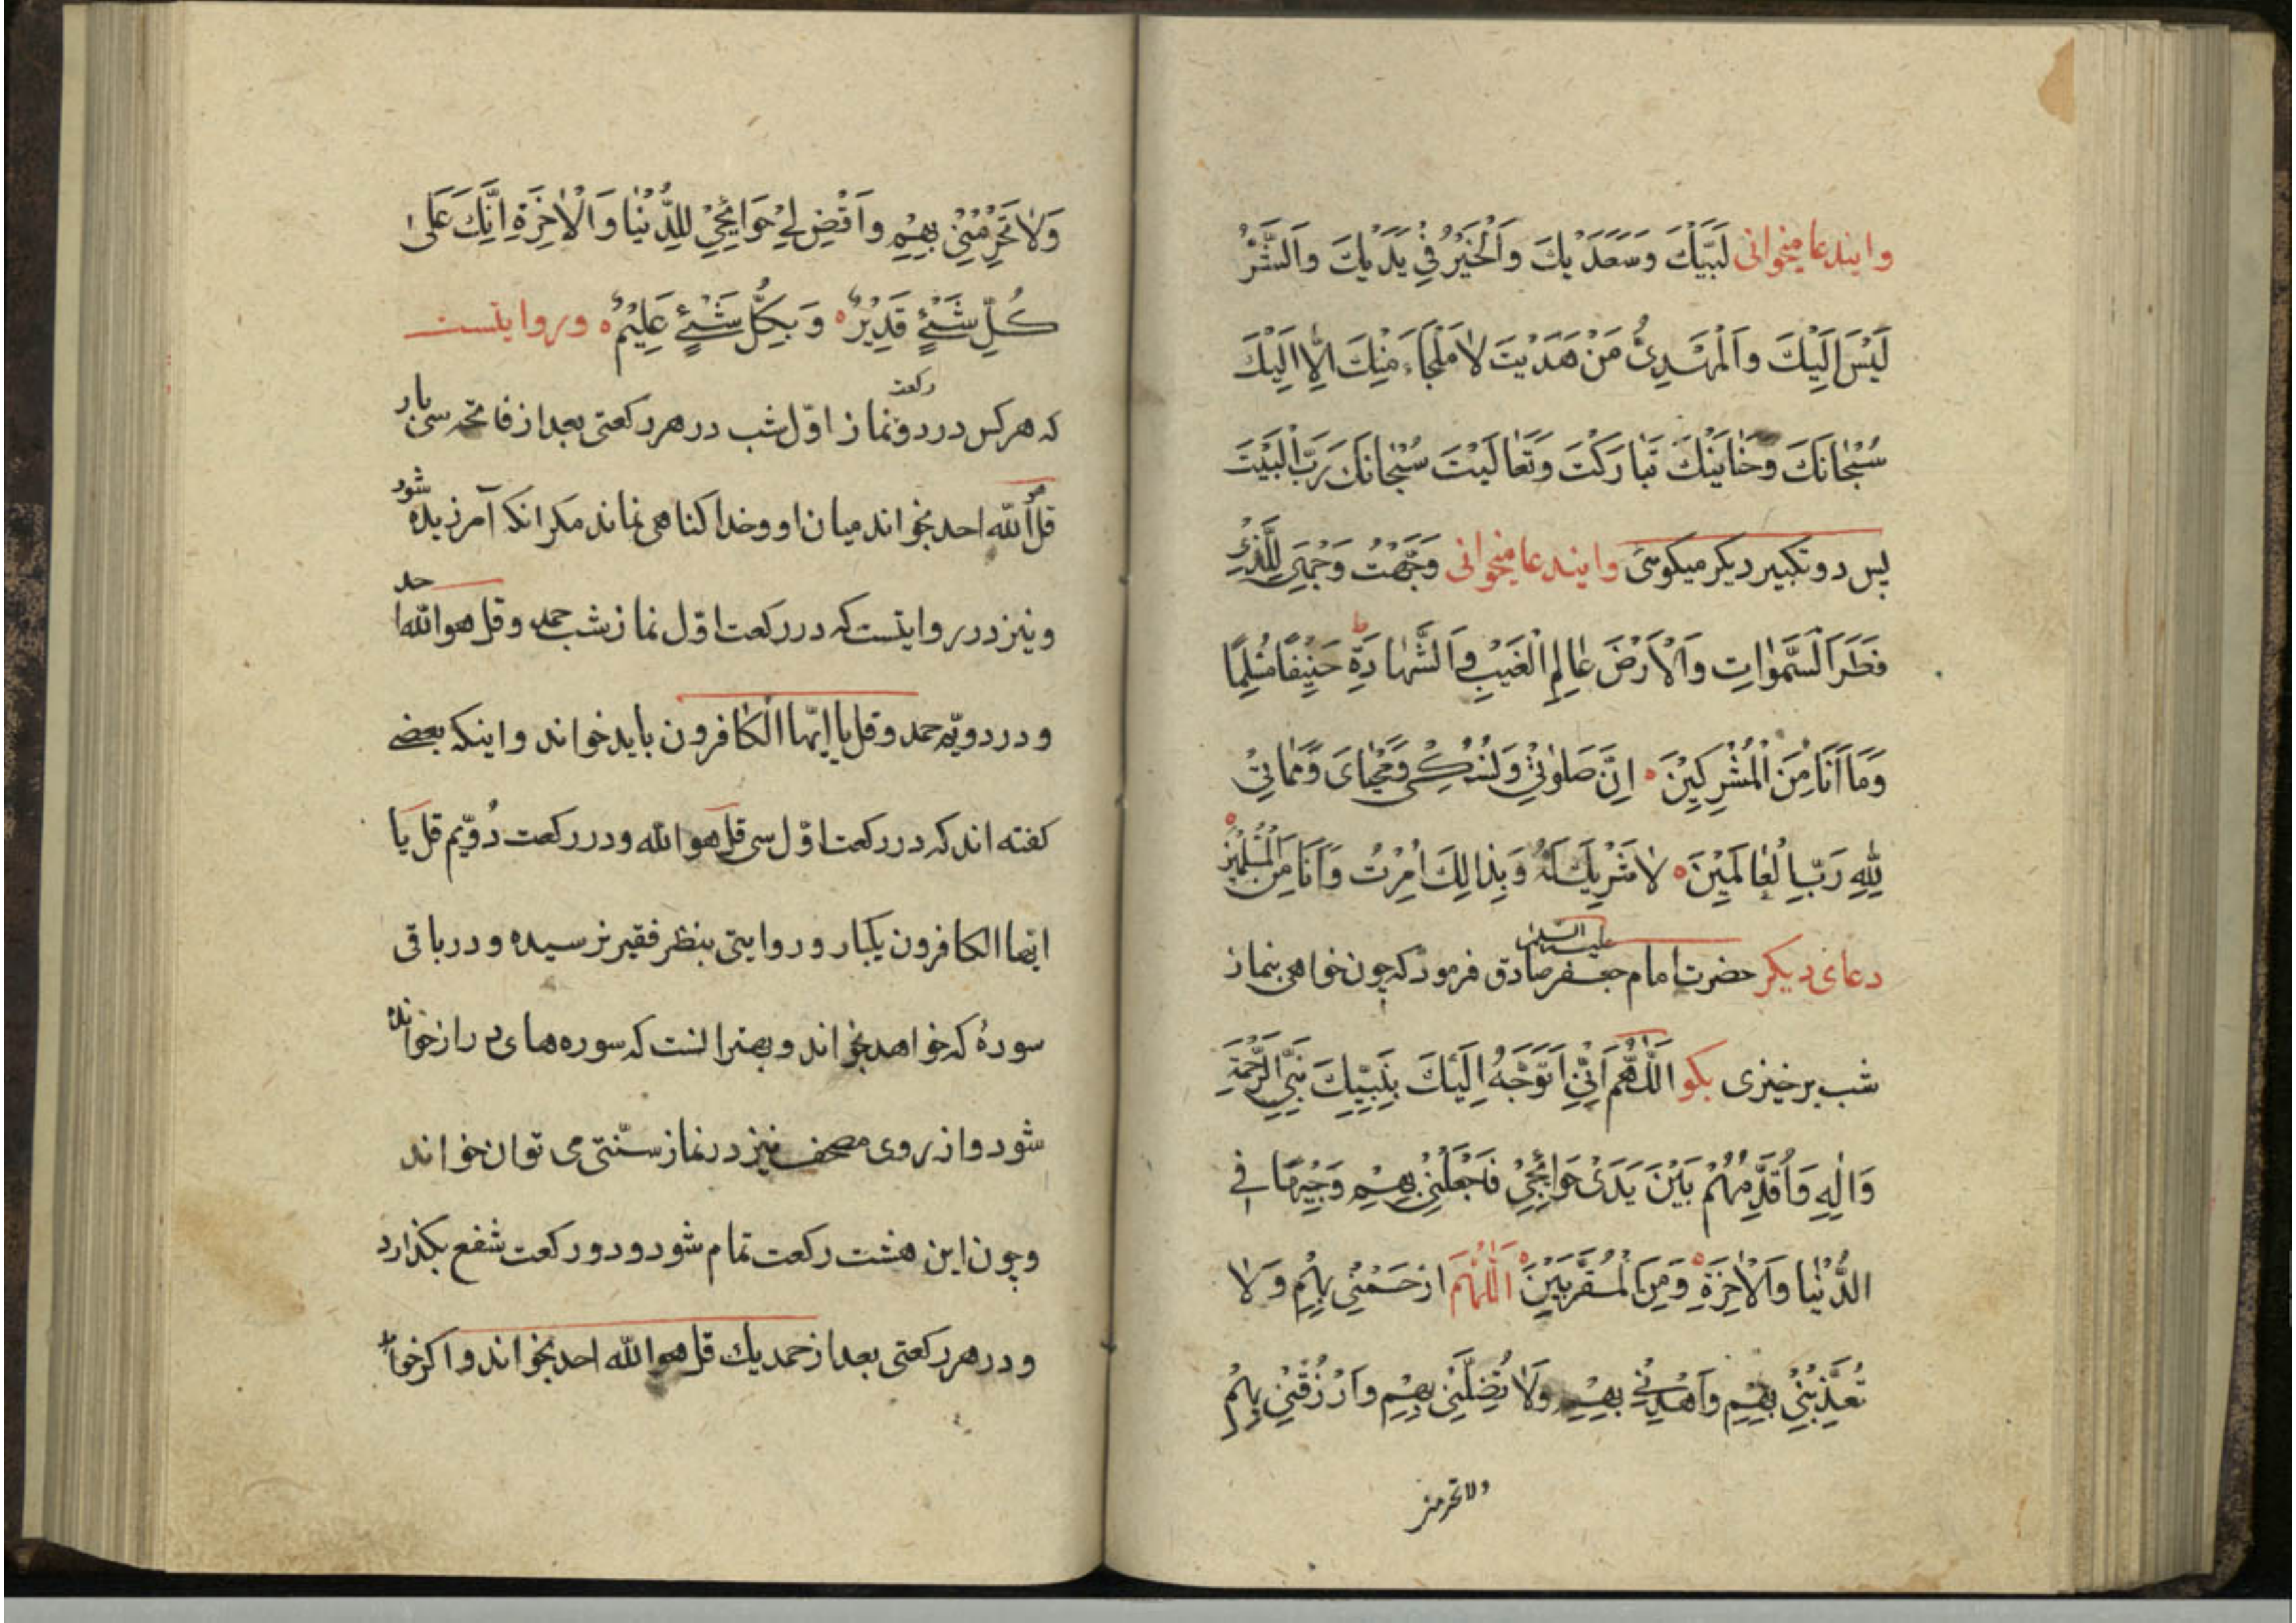 وایندعا میخوانی لَبَّيْكَ وَسَعَدَيْكَ وَالْخَيْرُ فِي يَدَيْكَ وَالشَّرُّ
لَيْسَ اِلَيْكَ وَالْمَهْدِىُّ مَنْ هَدَيْتَ لَا مَلْجَاءَ مِنْكَ اِلَّا اِلَيْكَ
سُبْحَانَكَ وَحَنَانَيْكَ تَبَارَكْتَ وَتَعَالَيْتَ سُبْحَانَكَ رَبَّ الْبَيْتَ
پس دو تکبیر دیکر میکوئی وایندعا میخوانی وَجَّهْتُ وَجْهِيَ لِلَّذِي
فَطَرَ السَّمٰوَاتِ وَالْاَرْضَ عَالِمِ الْغَيْبِ وَالشَّهَادَةِ حَنِيْفًا مُسْلِمًا
وَمَا اَنَا مِنَ الْمُشْرِكِيْنَ اِنَّ صَلوٰتِيْ وَنُسُكِىْ وَمَحْيَاىَ وَمَمَاتِىْ
لِلّٰهِ رَبِّ الْعَالَمِيْنَ لَا شَرِيْكَ لَهُ وَبِذَالِكَ اُمِرْتُ وَاَنَا مِنَ الْمُسْلِمِيْنَ
دعای دیکر حضرت امام جعفر صادق علیه السلام فرمود که چون خواهی بنماز
شب برخیزی بکو اَللّٰهُمَّ اِنِّيْ اَتَوَجَّهُ اِلَيْكَ بِنَبِيِّكَ نَبِيِّ الرَّحْمَةِ
وَاٰلِهِ وَاُقَدِّمُهُمْ بَيْنَ يَدَىْ حَوَائِجِيْ فَاجْعَلْنِيْ بِهِمْ وَجِيْهًا فِي
الدُّنْيَا وَالْاٰخِرَةِ وَمِنَ الْمُقَرَّبِيْنَ اَللّٰهُمَّ ارْحَمْنِيْ بِهِمْ وَلَا
تُعَذِّبْنِيْ بِهِمْ وَاهْدِنِيْ بِهِمْ وَلَا تُضِلَّنِيْ بِهِمْ وَارْزُقْنِيْ بِهِمْ
ولا تحرمنی
وَلَا تَحْرِمْنِيْ بِهِمْ وَاقْضِ لِيْ حَوَائِجِيْ لِلدُّنْيَا وَالْاٰخِرَةِ اِنَّكَ عَلَىٰ
كُلِّ شَيْءٍ قَدِيْرٌ وَبِكُلِّ شَيْءٍ عَلِيْمٌ و روایتست
که هرکس در دو رکعت نماز اوّل شب در هر رکعتی بعد از فاتحه سی بار
قل هو الله احد بخواند میان او و خدا کناهی نماند مکر انکه آمرزیده شود
و نیز در روایتست که در رکعت اوّل نماز شب حمد و قل هو الله احد
و در دویّم حمد و قل یا ایّها الکافرون باید خواند و اینکه بعضی
کفته اند که در رکعت اوّل سی قل هو الله و در رکعت دُویّم قل یا
ایها الکافرون یکبار و روایتی بنظر فقیر نرسیده و در باقی
سورهٔ که خواهد بخواند و بهتر انست که سوره های دراز خوانده
شود و از روی مصحف نیز در نماز سنّتی می توان خواند
و چون این هشت رکعت تمام شود و دو رکعت شفع بکذارد
و در هر رکعتی بعد از حمد یك قل هو الله احد بخواند و اکر خواهد